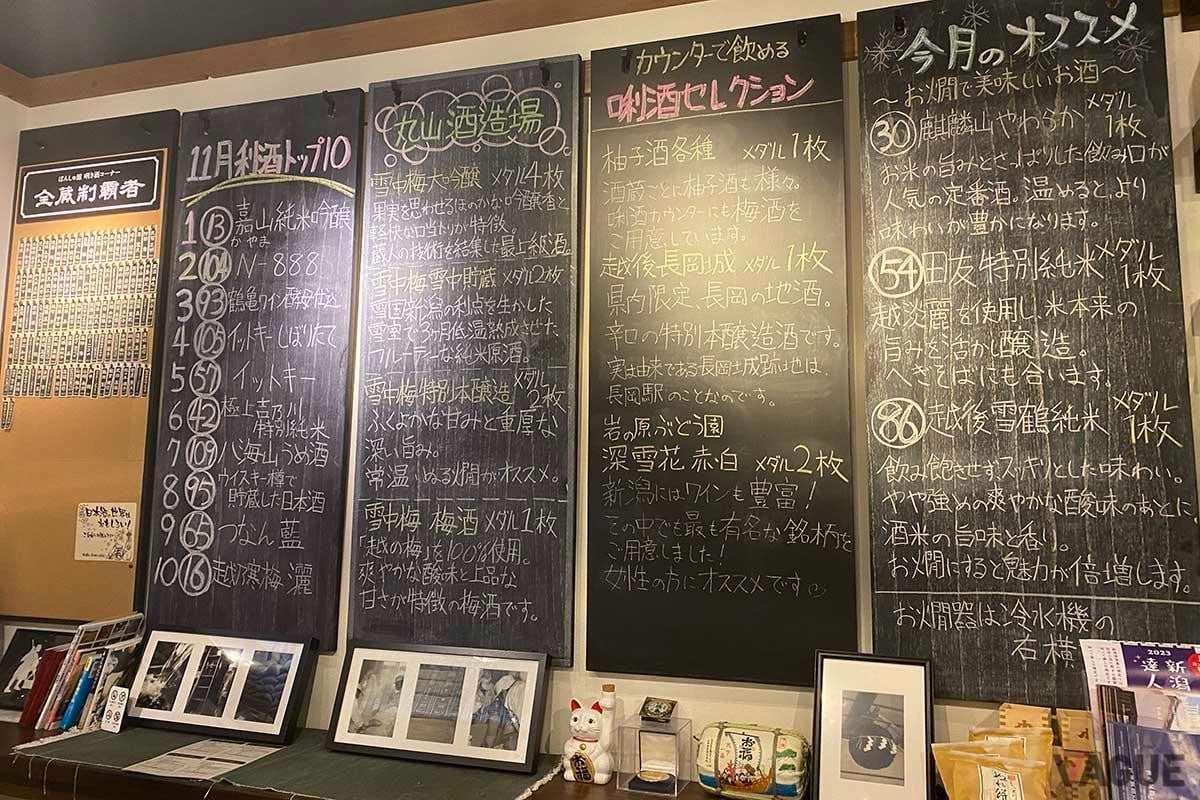 ぽんしゅ館 唎き酒コーナー
全蔵制覇者
11月利酒トップ10
1 13 嘉山純米吟醸
かやま
2 104 N-888
3 93 鶴亀ワイン酵母仕込
4 105 イットキーしぼりたて
5 57 イットキー
6 42 極上吉乃川
特別純米
7 109 八海山うめ酒
8 95 ウイスキー樽で
貯蔵した日本酒
9 65 つなん 藍
10 16 越乃寒梅 灑
丸山酒造場
雪中梅大吟醸 メダル4枚
果実を思わせるほのかな吟醸香と
軽快な口当たりが特徴。
蔵人の技術を結集した最上級酒。
雪中梅雪中貯蔵 メダル2枚
雪国新潟の利点を生かした
雪室で3ヶ月低温熟成させた
フルーティーな純米原酒。
雪中梅特別本醸造 メダル2枚
ふくよかな甘みと重厚な
深い旨み。
常温・ぬる燗がオススメ。
雪中梅 梅酒 メダル1枚
「越の梅」を100%使用。
爽やかな酸味と上品な
甘さが特徴の梅酒です。
カウンターで飲める
唎酒セレクション
柚子酒各種 メダル1枚
酒蔵ごとに柚子酒も様々。
唎酒カウンターにも梅酒を
ご用意しています。
越後長岡城 メダル1枚
県内限定、長岡の地酒。
辛口の特別本醸造酒です。
実は由来である長岡城跡地は、
長岡駅のことなのです。
岩の原ぶどう園
深雪花 赤・白 メダル2枚
新潟にはワインも豊富!
その中でも最も有名な銘柄を
ご用意しました!
女性の方にオススメです♡
今月のオススメ
～お燗で美味しいお酒～
30 麒麟山やわらか メダル1枚
お米の旨みとさっぱりした飲み口が
人気の定番酒。温めると、より
味わいが豊かになります。
54 田友 特別純米 メダル1枚
越淡麗を使用し、米本来の
旨みを活かし醸造。
へぎそばにも合います。
86 越後雪鶴純米 メダル1枚
飲み飽きせずスッキリとした味わい。
やや強めの爽やかな酸味のあとに
酒米の旨味と香り。
お燗にすると魅力が倍増します。
お燗器は冷水機の
右横
2023
新潟
達人
お福
お福
VAGUE